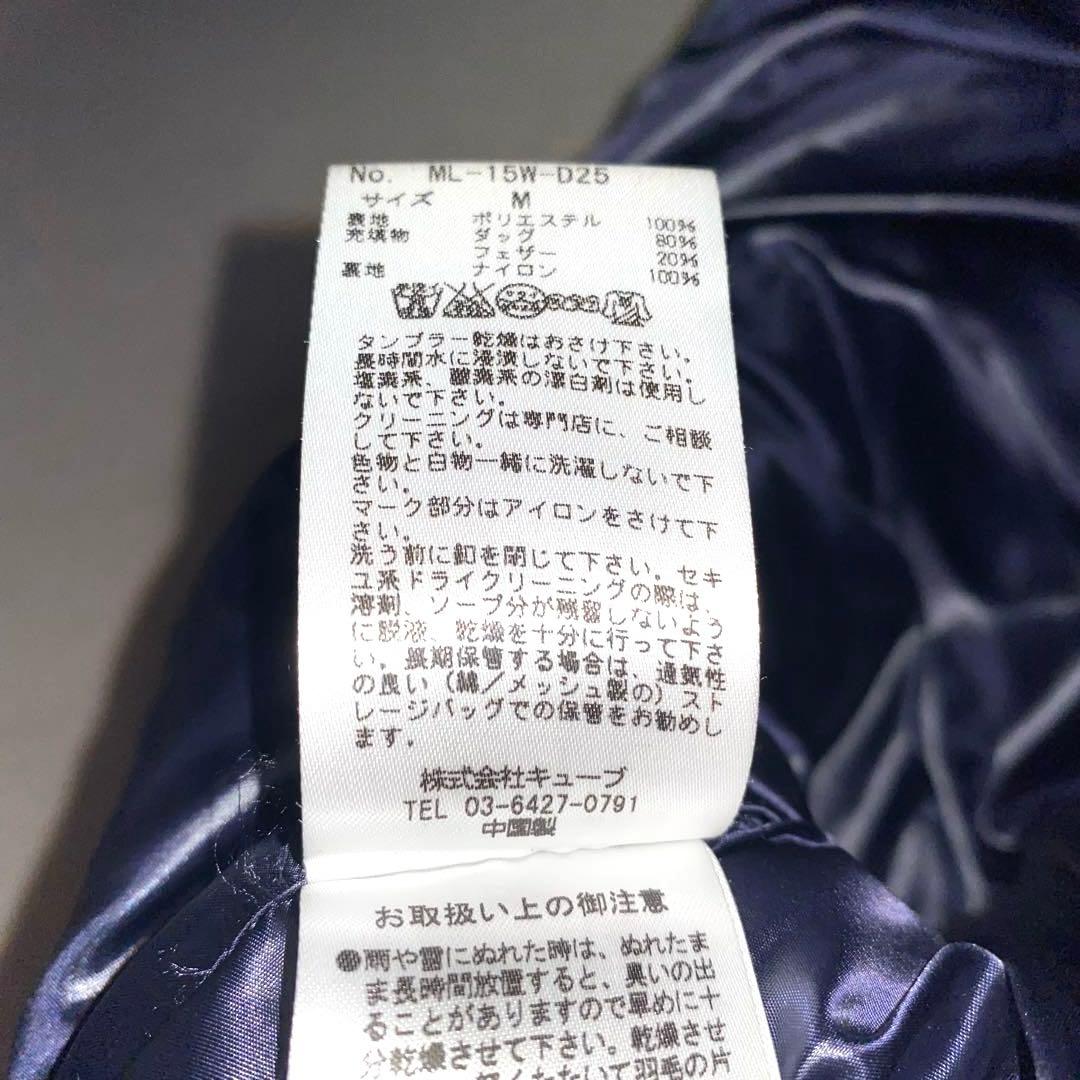 No. ML-15W-D25
サイズ M
表地 ポリエステル 100%
充填物 ダック 80%
フェザー 20%
裏地 ナイロン 100%
タンブラー乾燥はおさけ下さい。
長時間水に浸漬しないで下さい。
塩素系、酸素系の漂白剤は使用し
ないで下さい。
クリーニングは専門店に、ご相談
して下さい。
色物と白物一緒に洗濯しないで下
さい。
マーク部分はアイロンをさけて下
さい。
洗う前に釦を閉じて下さい。セキ
ユ系ドライクリーニングの際は、
溶剤、ソープ分が残留しないよう
に脱液、乾燥を十分に行って下さ
い。長期保管する場合は、通気性
の良い（綿／メッシュ製の）スト
レージバッグでの保管をお勧めし
ます。
株式会社キューブ
TEL 03-6427-0791
中国製
お取扱い上の御注意
●雨や雪にぬれた時は、ぬれたま
ま長時間放置すると、臭いの出
ることがありますので早めに十
分乾燥させて下さい。乾燥させ
軽くたたいて羽毛の片